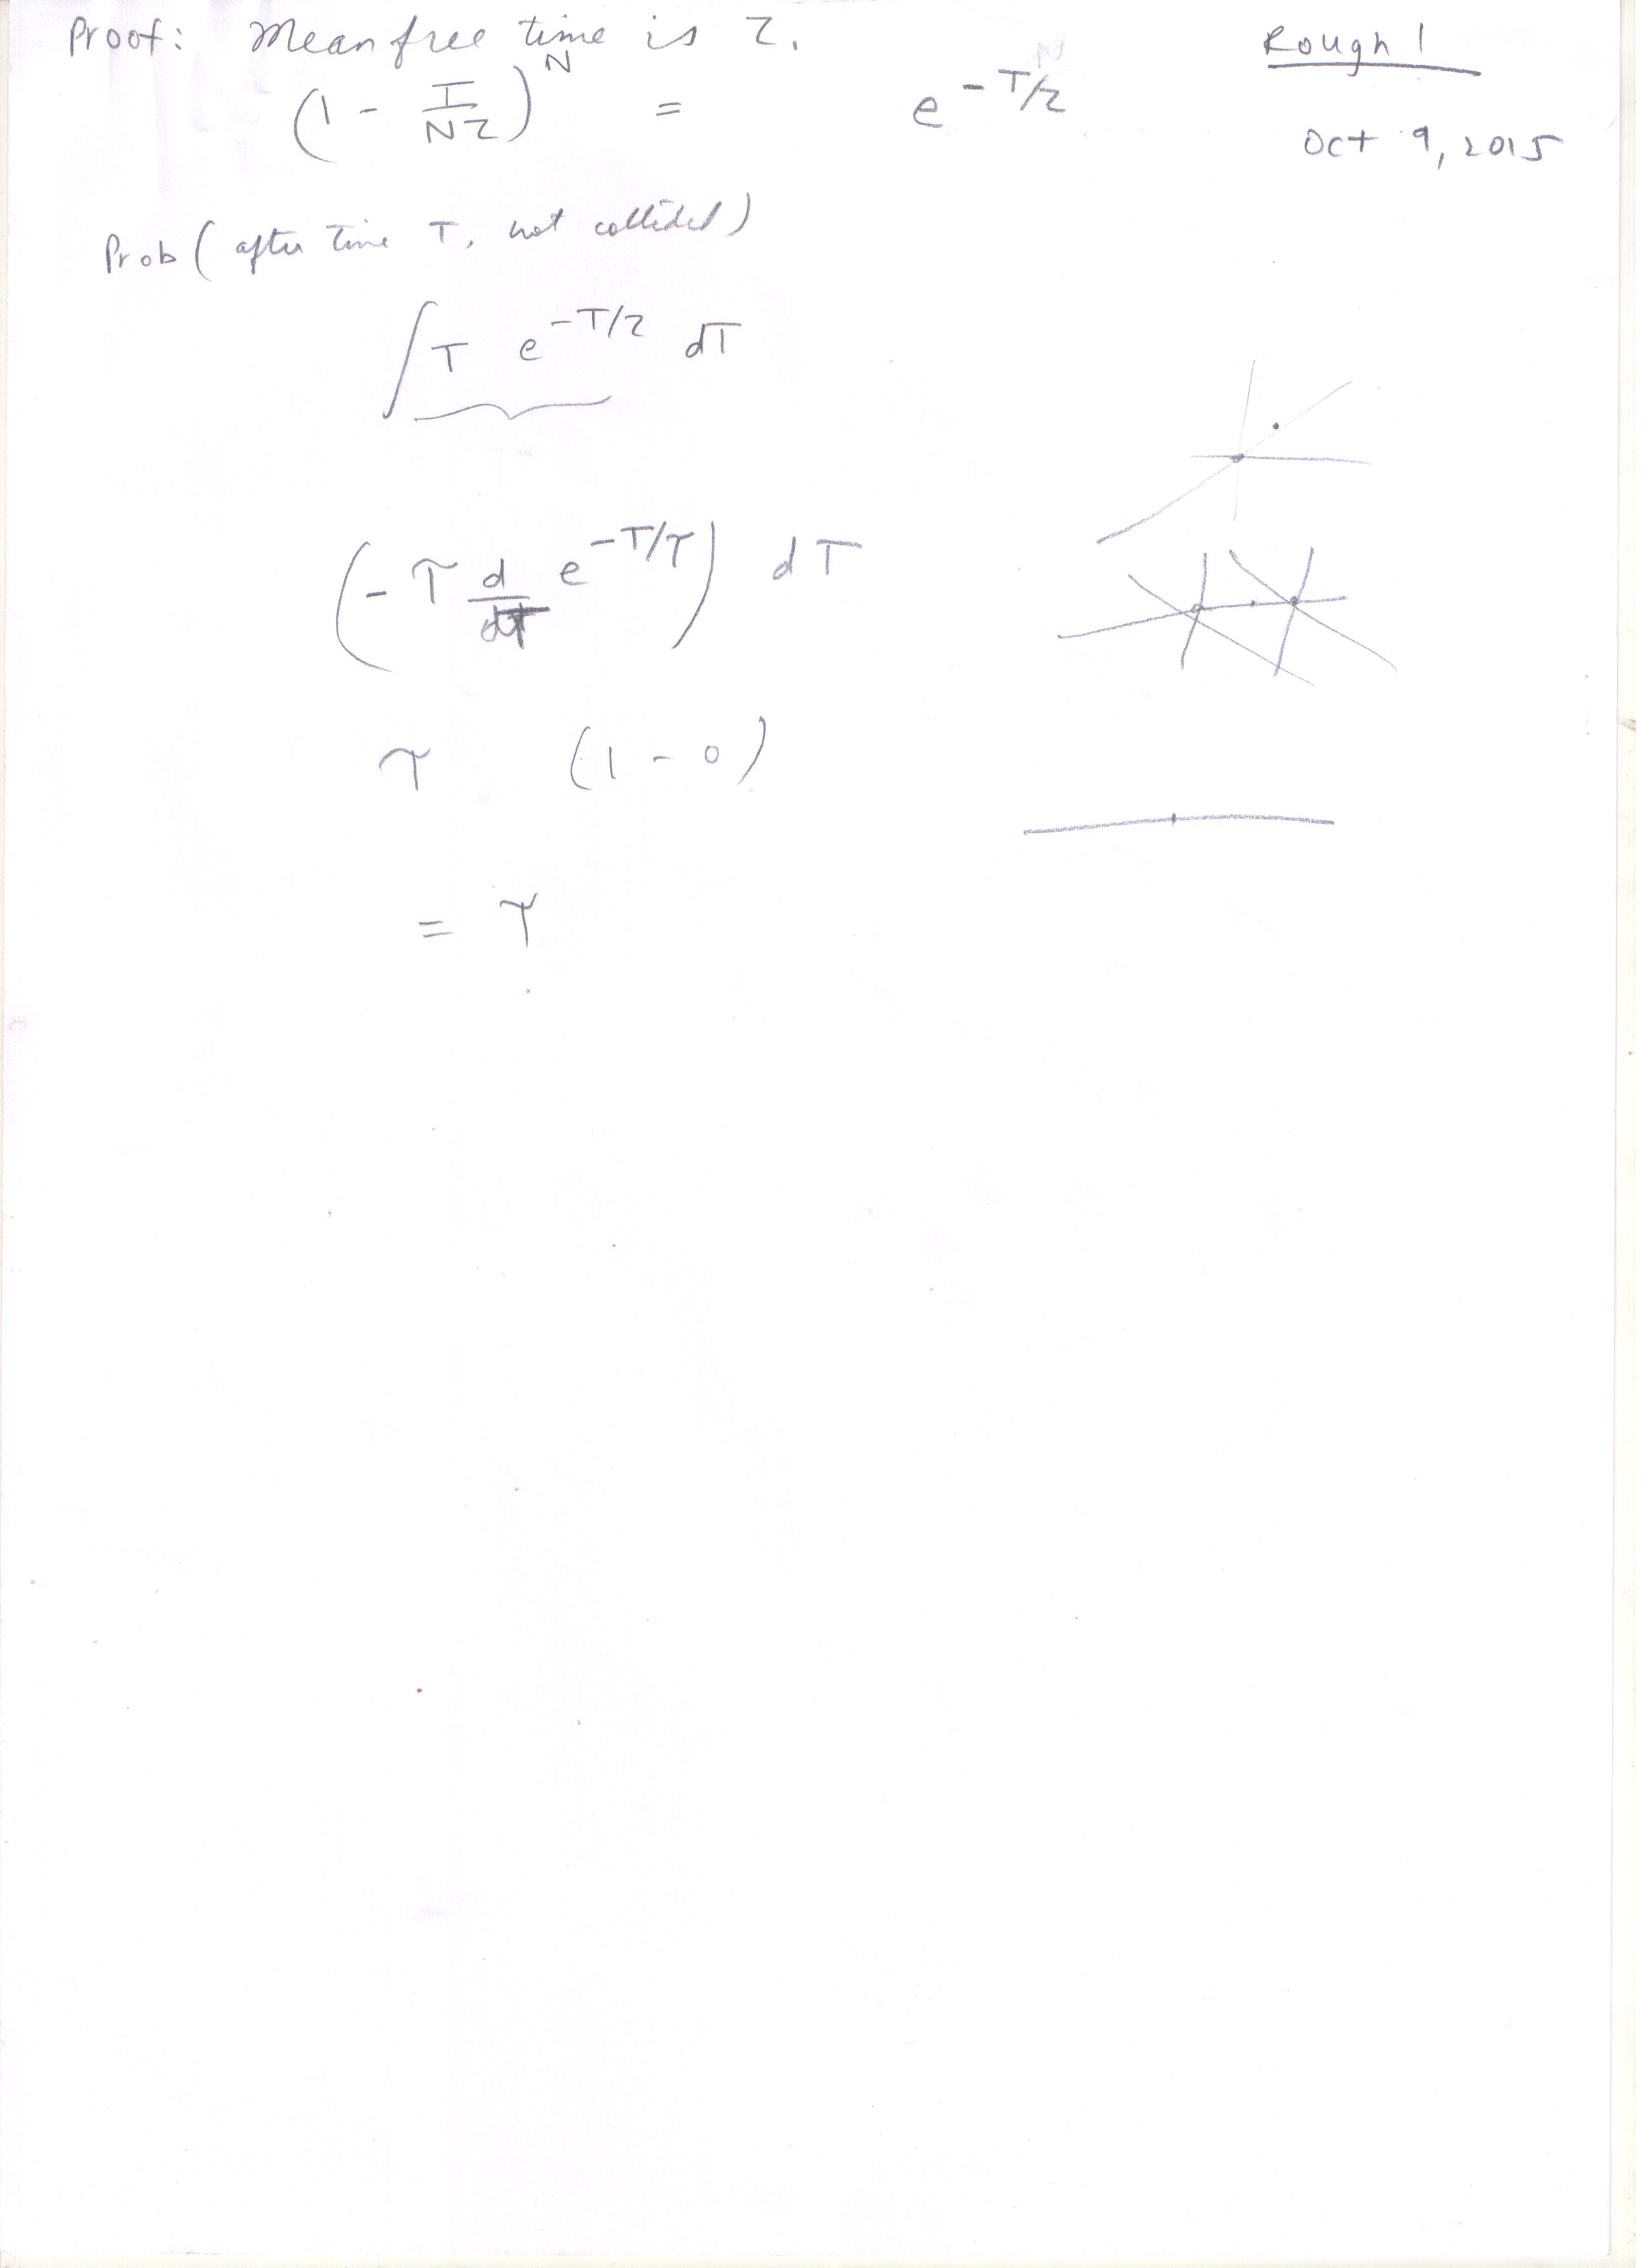 Proof: Mean free time is τ.
Rough 1
(1 - T/Nτ)^N = e^{-T/τ}
Oct 9, 2015
Prob (after time T, not collided)
∫ T e^{-T/τ} dT
(-τ d/dT e^{-T/τ}) dT
τ (1 - 0)
= τ